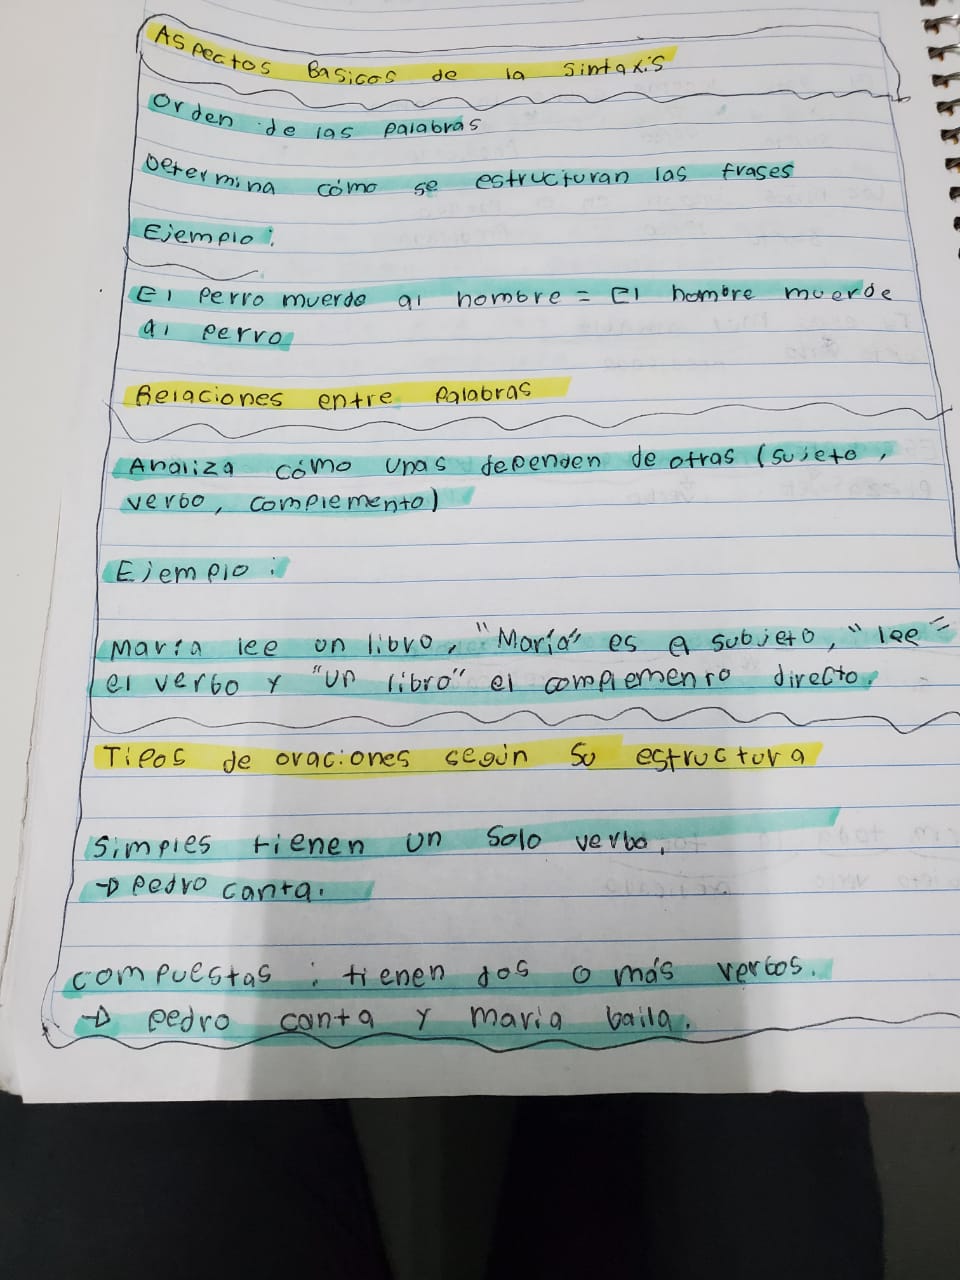 Aspectos Basicos de la sintaxis
Orden de las palabras
Determina cómo se estructuran las frases
Ejemplo:
El perro muerde al hombre = El hombre muerde
al perro
Relaciones entre Palabras
Analiza cómo unas dependen de otras (sujeto,
verbo, complemento)
Ejemplo:
María lee un libro, "María" es el subjeto, "lee"
el verbo y "un libro" el complemento directo.
Tipos de oraciones según su estructura
Simples tienen un solo verbo.
→ pedro canta.
compuestas: tienen dos o más verbos.
→ pedro canta y maria baila.